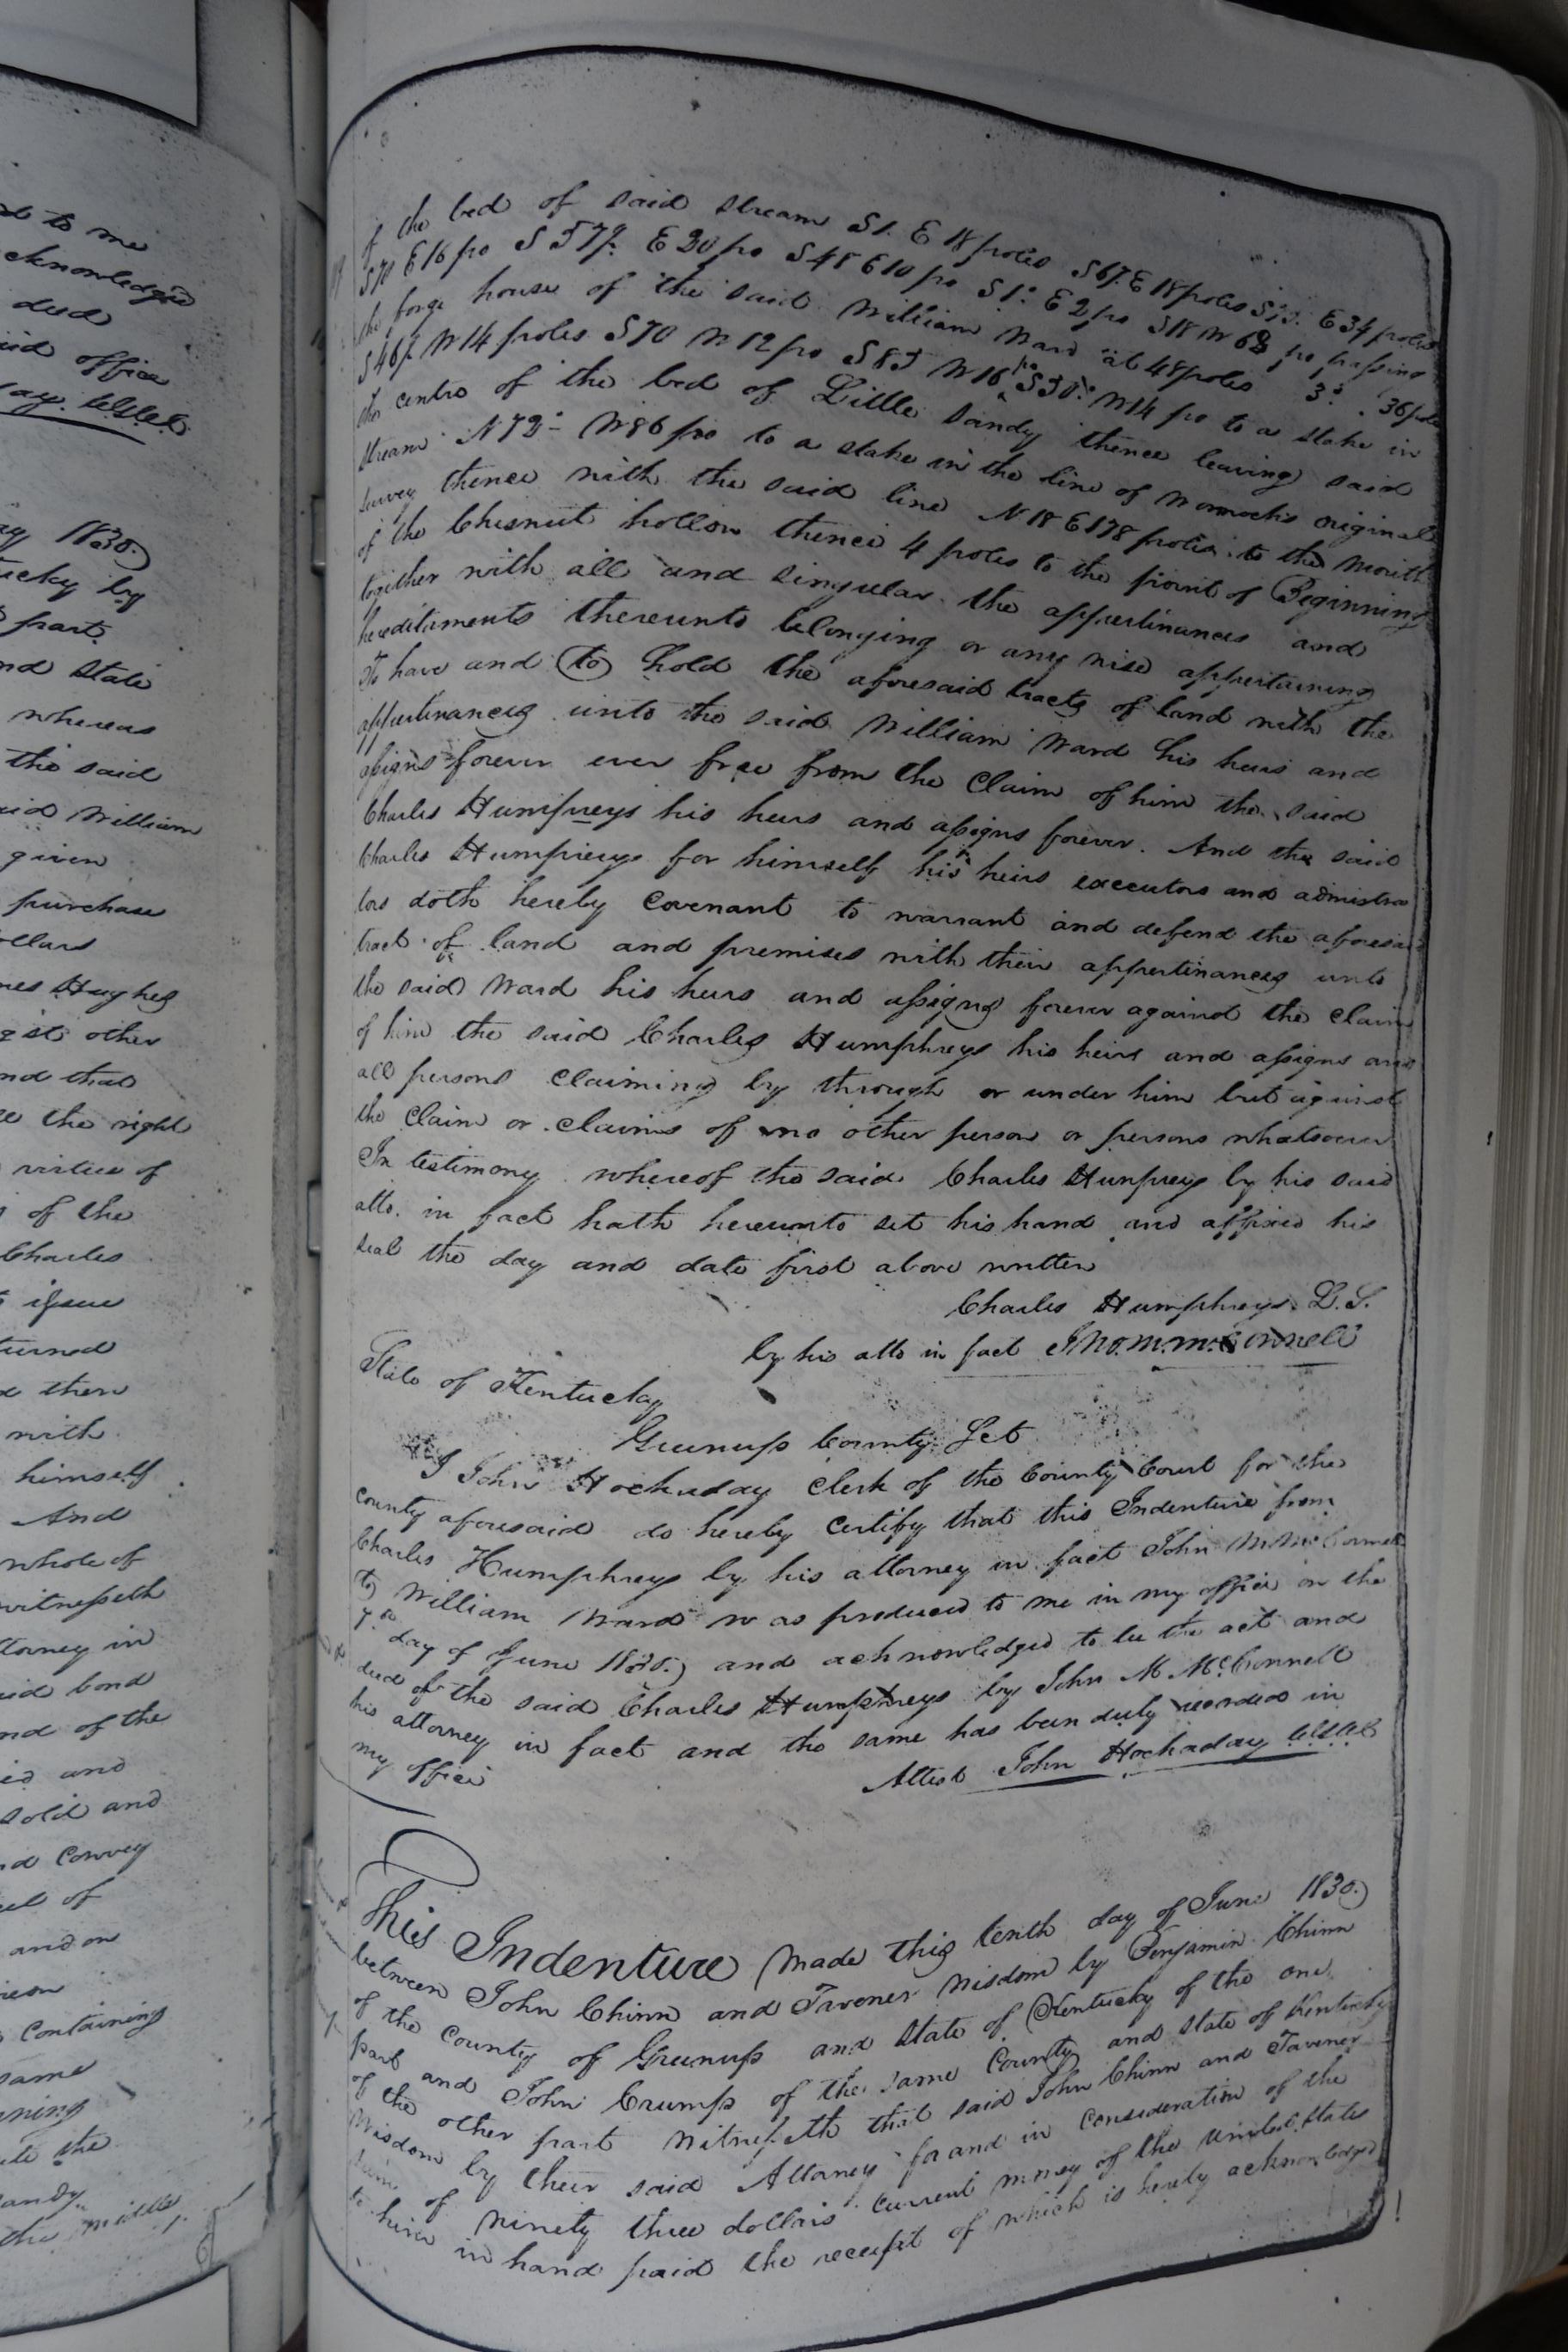 d to me
cknowledged
deed
id office
ay. Clk
ay 1830.)
ucky by
part
nd State
whereas
the said
aid William
given
purchase
ollars
mes Hughes
st other
nd that
the right
virtue of
of the
Charles
issue
turned
then
with
himself
And
whole of
witnesseth
ttorney in
aid bond
nd of the
ed and
sold and
nd Convey
el of
and on
Containing
same
ning
the
andy
the middle
of the bed of said stream S1. E 18 poles S67. E 18 poles E 34 poles
S70 E 16 po S E 20 po S48 E 10 po S1° E 2 po S18 W 68 po passing
the forge house of the said William Ward at 48 poles 36 poles
S46½ W 14 poles S70 W 12 po S85 W 16 po W 14 po to a stake in
the centre of the bed of Little Sandy thence leaving said
stream N72° W 86 po to a stake in the line of original
survey thence with the said line N18 E 178 poles to the mouth
of the Chesnut hollow thence 4 poles to the point of Beginning
together with all and singular the appertinances and
hereditaments thereunto belonging or any wise appertaining
To have and to hold the aforesaid tracts of land with the
appertinances unto the said William Ward his heirs and
assigns forever ever free from the Claim of him the said
Charles Humpreys his heirs and assigns forever. And the said
Charles Humpreys for himself his heirs executors and admistra
tors doth hereby Covenant to warrant and defend the aforesaid
tract of land and premises with their appertinances unto
the said Ward his heirs and assigns forever against the Claim
of him the said Charles Humphreys his heirs and assigns and
all persons claiming by through or under him but against
the Claim or Claims of no other person or persons whatsoever
In testimony whereof the said Charles Hunpreys by his said
atto. in fact hath hereunto set his hand and affixed his
seal the day and date first above written
Charles Humphreys. L.S.
by his atto in fact Jno. M. McConnell
State of Kentucky
Greenup County Sct
I John Hockaday Clerk of the County Court for the
county aforesaid do hereby Certify that this Indenture from
Charles Humphreys by his attorney in fact John M McConnell
to William Ward was produced to me in my office on the
day of June 1830.) and acknowledged to be the act and
deed of the said Charles Humphreys by John M McConnell
his attorney in fact and the same has been duly recorded in
my office
Attest John Hockaday
This Indenture made this tenth day of June 1830.)
between John Chinn and Tavener Wisdom by Benjamin Chinn
of the County of Greenup and State of Kentucky of the one
part and John Crump of the same County and State of Kentucky
of the other part Witnesseth that said John Chinn and Tavener
Wisdom by their said Attorney for and in Consideration of the
sum of Ninety three dollars Current money of the United States
to him in hand paid the receipt of which is hereby acknowledged